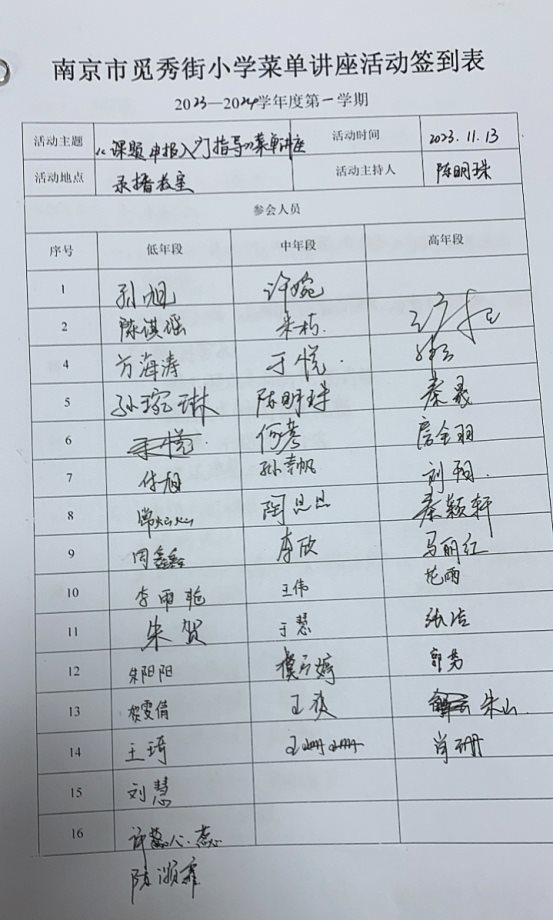 南京市觅秀街小学菜单讲座活动签到表
2023—2024学年度第一学期
活动主题 《课题申报入门指导》菜单讲座 活动时间 2023.11.13
活动地点 录播教室 活动主持人 陈明珠
参会人员
序号 低年段 中年段 高年段
1 孙旭 许婉
2 陈淇瑶
4 方海涛 于悦
5 孙琬琳 陈明珠 秦晟
6 何青 房全羽
7 付旭 孙幸帆 刘翔
8 陶思思 秦颖轩
9 周鑫鑫 李欣 马丽红
10 李雨艳 王伟 范雨
11 朱贺 于慧 张洁
12 朱阳阳 郭芳
13 朱山
14 王琦 王姗姗 肖珊
15 刘慧
16